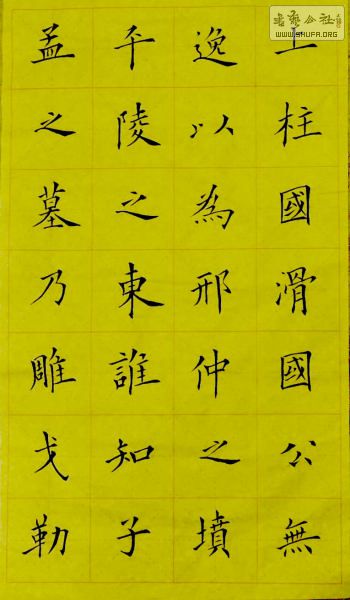 上柱國滑國公無
逸以為邢仲之墳
平陵之東誰知子
孟之墓乃雕戈勒
公社
WWW.SHUFA.ORG